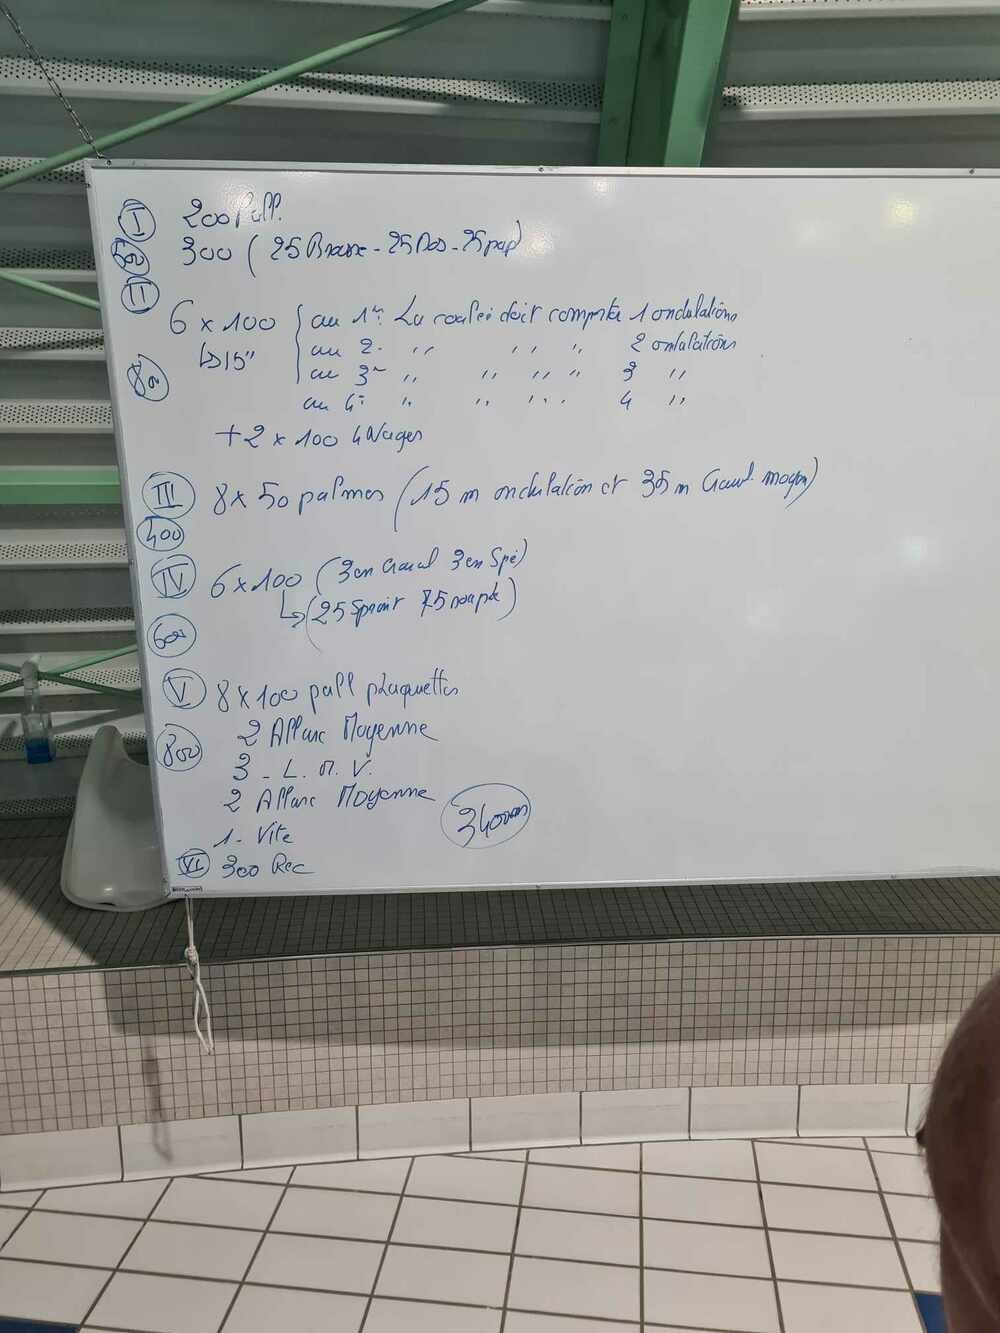 I 200 Pull.
500 300 (25 Brasse - 25 Dos - 25 pap)
II
6 x 100 au 1er: La coulée doit compter 1 ondulations
↳15" au 2. ,, ,, ,, 2 ondulations
800 au 3e ,, ,, ,, ,, 3 ,,
au 4e ,, ,, ,, ,, 4 ,,
+ 2 x 100 4 Nages
III 8 x 50 palmes (15 m ondulation et 35 m Crawl moyen)
400
IV 6 x 100 (3 en Crawl 3 en Spé)
↳ (25 Sprint 75 souple)
600
V 8 x 100 pull plaquettes
800 2 Allure Moyenne
3 - L. M. V.
2 Allure Moyenne
1 - Vite
3400m
VI 300 Rec